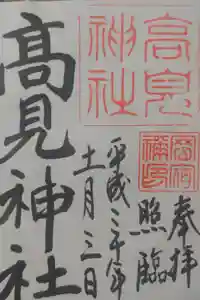 奉拝
照臨
高見
神社
平成三十年
十一月三日
高見神社